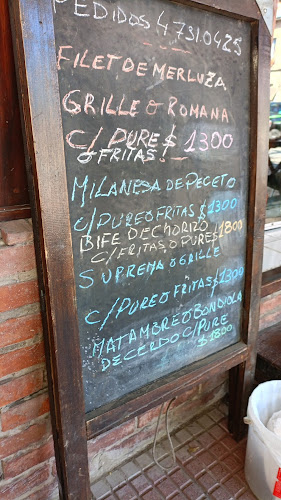 PEDIDOS 4731.0425
FILET DE MERLUZA
GRILLE O ROMANA
C/ PURE $ 1300
O FRITAS!
MILANESA DE PECETO
C/ PURE O FRITAS $ 1300
BIFE DE CHORIZO
C/ FRITAS O PURE $ 1800
SUPREMA O GRILLE
C/ PURE O FRITAS $ 1300
MATAMBRE O BONDIOLA
DE CERDO C/ PURE
$ 1800